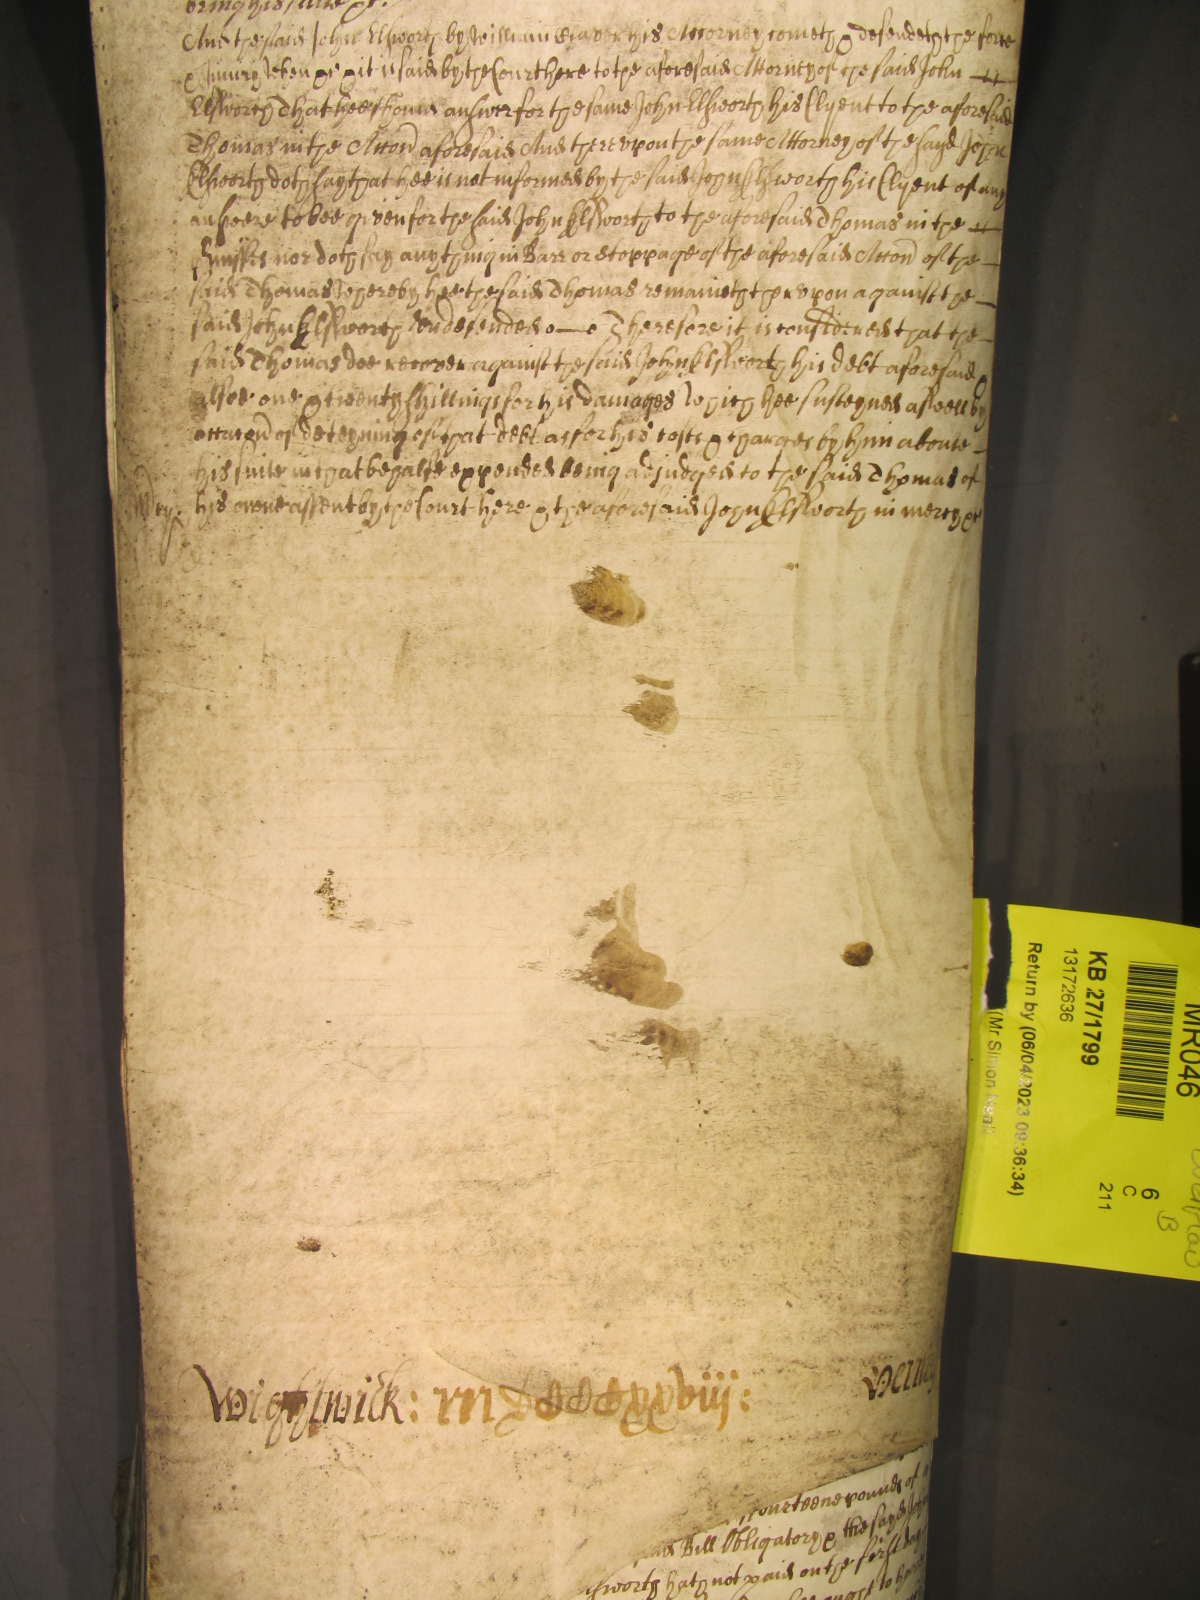 bring his suite &c.
And the said John Elsworth by William his Attorney cometh & defendeth the force
& Injury When &c & it is said by the Court here to the aforesaid Attorney of the said John
Elsworth That hee should answer for the same John Elsworth his Clyent to the aforesaid
Thomas in the Accon aforesaid And thereupon the same Attorney of the sayd John
Elsworth doth say that hee is not informed by the said John Elsworth his Clyent of any
answere to bee given for the said John Elsworth to the aforesaid Thomas in the
nor doth say any thing in Barr or stoppage of the aforesaid Accon of the
said Thomas Whereby hee the said Thomas remaineth thereupon against the
said John Elsworth Undefended Therefore it is considered that the
said Thomas doe recover against the said John Elsworth his debt aforesaid &
alsoe one & twenty shillings for his damages which hee susteyned aswell by
occacon of deteyning of that debt as for his costs & charges by him aboute
his suite in that behalfe expended being adjudged to the said Thomas of
his owne assent by the Court here & the aforesaid John Elsworth in mercy &c
Wightwick: xxviij:
fourteene pounds of
said Bill Obligatory & the sayd
Elsworth hath not paid on the first day
ought to
MR046
KB 27/1799
13172636
Return by (06/04/2023 09:36:34)
(Mr Simon Neal)
6
C
211
B